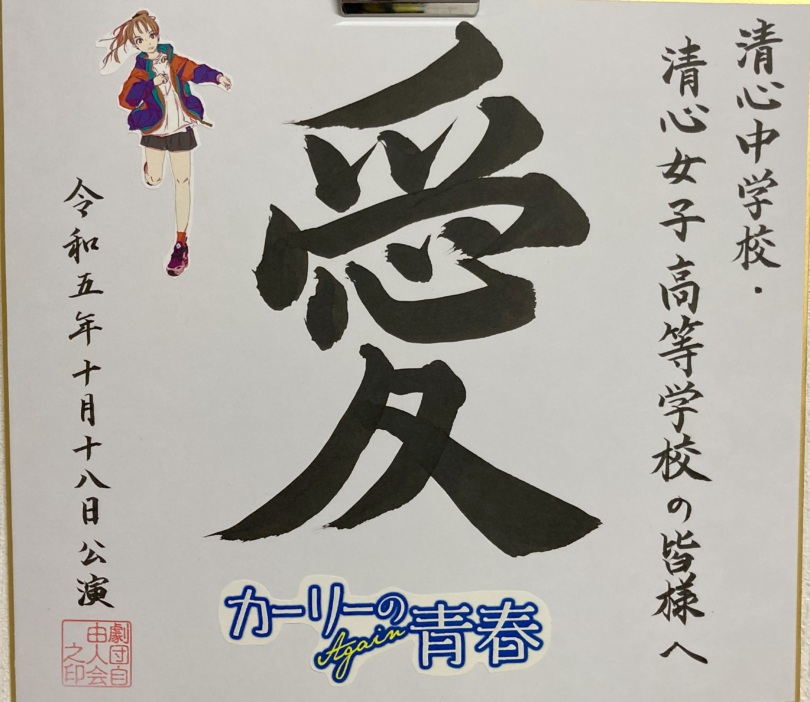 清心中学校・
清心女子高等学校の皆様へ
愛
令和五年十月十八日公演
劇団自
由人会
之印
カーリーの青春
Again